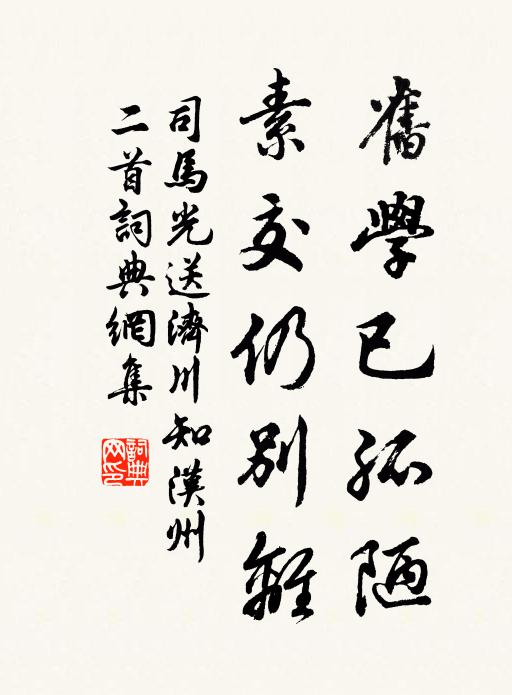 舊學已孤陋
素交仍別離
司馬光送濟川知漢州
二首詞典網集
詞典网印